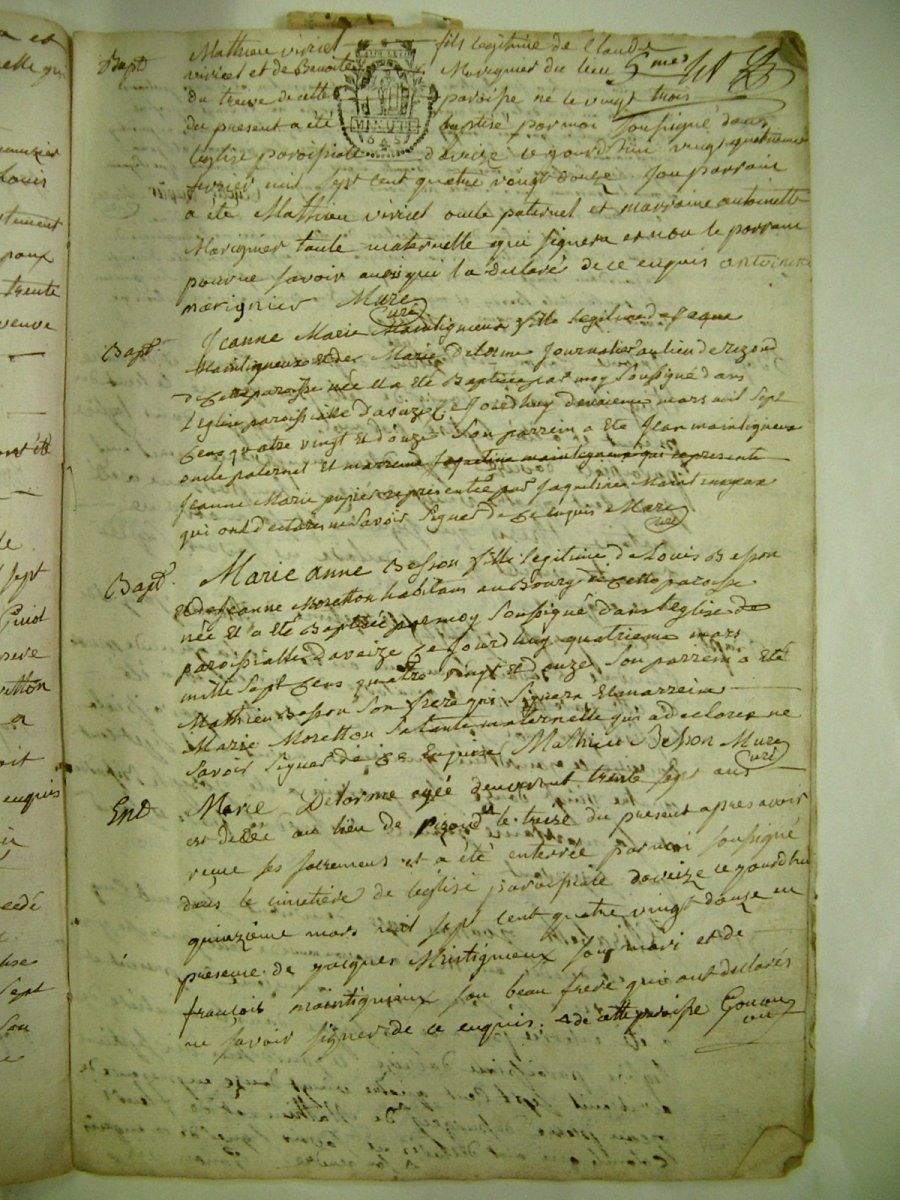 Bapt Mathieu viricel fils legitime de Claude
viricel et de Benoite Marignier du lieu 5me
du treive de cette paroisse né le vingt trois
du present a été baptisé par moi soussigné dans
l'eglise paroissiale d'aveize ce jourd'hui vingt quatrieme
fevrier mil sept cent quatre vingt douze son parrain
a été Mathieu viricel oncle paternel et marraine antoinette
Marignier tante maternelle qui signera et non le parrain
pour ne savoir ainsi qu'il l'a declaré de ce enquis antoinette
marignier Mure
curé
Bapt Jeanne Marie Maintigneux fille legitime de Jaque
Maintigneux et de Marie Delorme Journalier au lieu de rizond
de cette paroisse née et a été Baptisée par moy soussigné dans
l'eglise paroissialle d'aveize ce Jourdhuy deuxieme mars mil sept
cens quatre vingt et douze son parrein a été Jean maintigneux
oncle paternel et marreine Jaqueline maintigneux qui represente
Jeanne Marie pupier representée par Jaqueline Maintigneux
qui ont declarés ne savoir signer de ce enquis Mure
curé
Bapt. Marie anne Besson fille legitime de Louis Besson
et de Jeanne Moretton habitans au Bourg de cette paroisse
née et a été Baptisée par moy soussigné dans l'eglise de
paroissialle d'aveize ce Jourdhuy quatrieme mars
mille sept cens quatre vingt et douze son parrein a été
Mathieu Besson son frere qui signera et marreine
Marie Moretton sa tante maternelle qui a declarée ne
savoir signer de ce enquise Mathieu Besson Mure
curé
Ent Marie Delorme agée d'environt trente sept ans
est decée au lieu de rizond le treize du present apres avoir
reçue ses sacremens et a été enterrée par moi soussigné
dans le cimetière de l'église paroissiale d'aveize ce jourd'hui
quinzième mars mil sept cent quatre vingt douze en
presence de jacques Mintigneux son mari et de
françois maintigneux son beau frere qui ont declarés
ne savoir signer de ce enquis. de cette paroisse
MINUTE